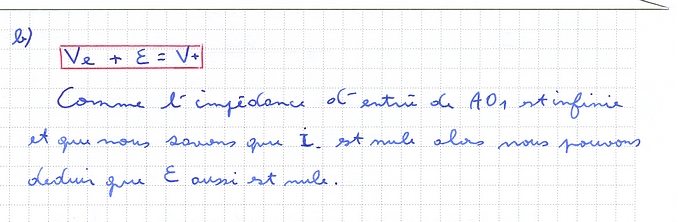 b)
Ve + ε = V+
Comme l'impédance d'entrée de AO1 est infinie
et que nous savons que i- est nulle alors nous pouvons
deduire que ε aussi est nulle.